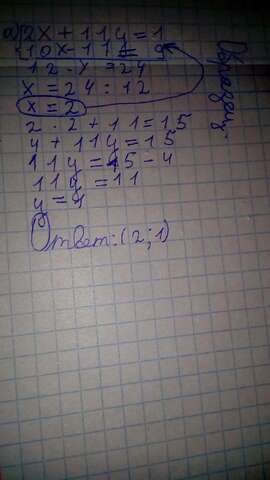 а) 2x + 11y = 1
10x - 11y = 9
12 · x = 24
x = 24 : 12
x = 2
2 · 2 + 11 = 15
4 + 11y = 15
11y = 15 - 4
11y = 11
y = 1
Ответ: (2; 1)
Образец